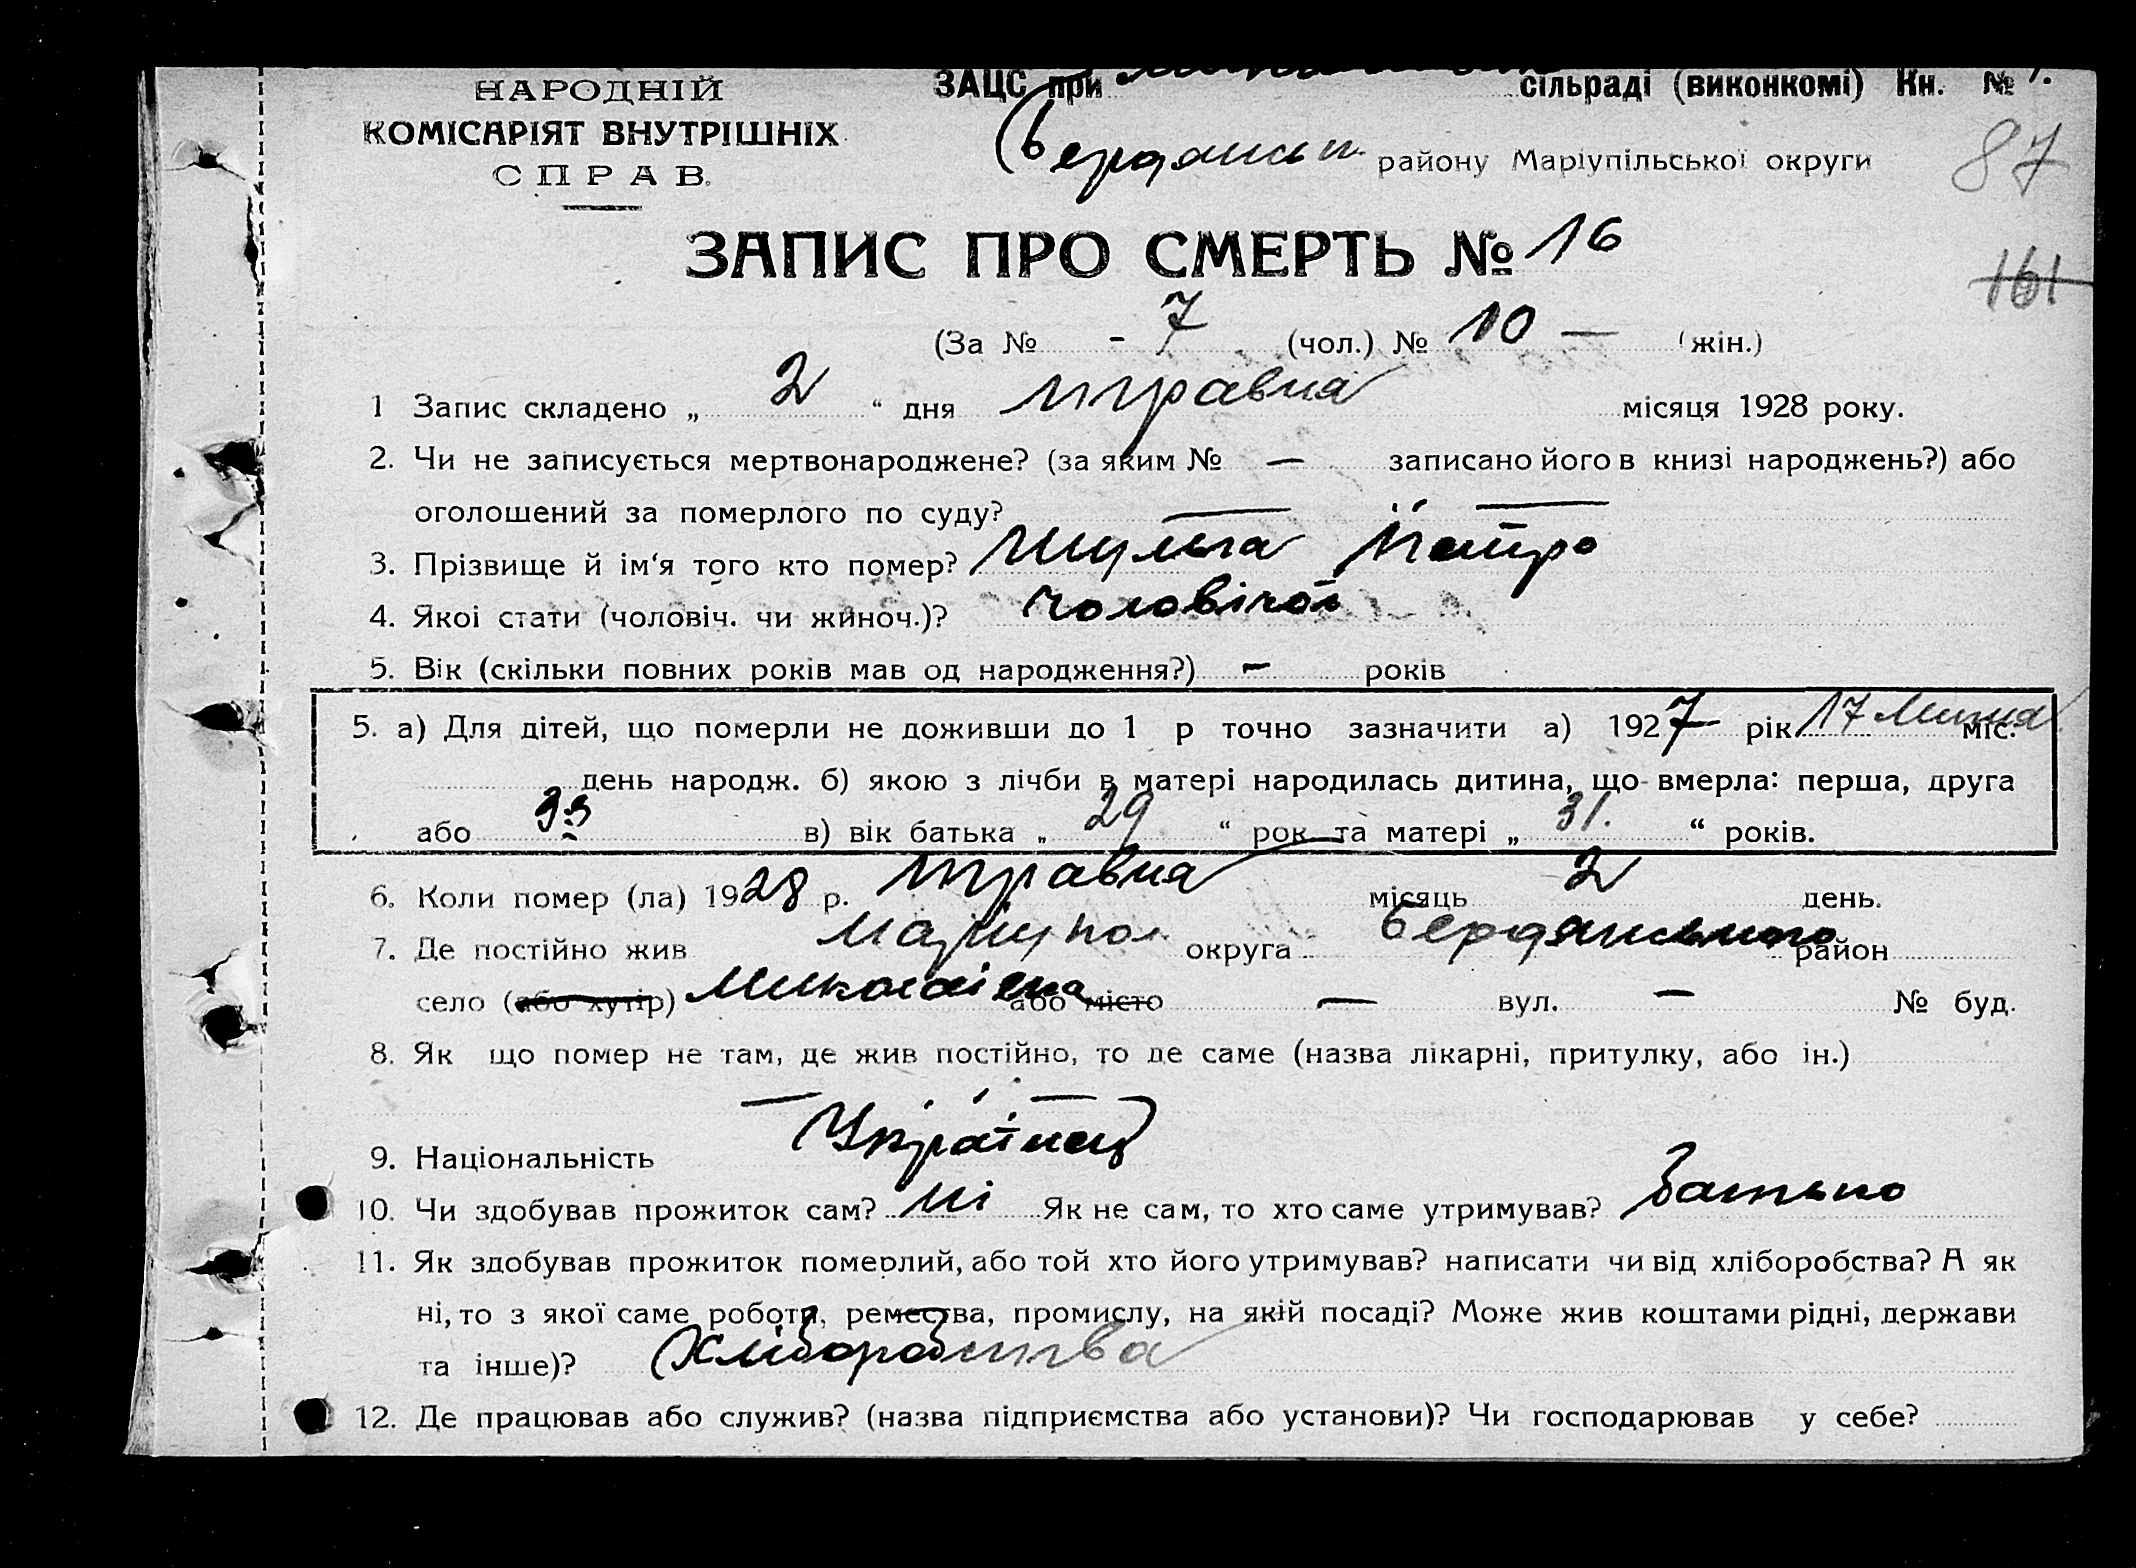 НАРОДНІЙ
КОМІСАРІЯТ ВНУТРІШНІХ
СПРАВ.
ЗАЦС при сільраді (виконкомі) Кн. №
Бердянськ. району Маріупільської округи
87
ЗАПИС ПРО СМЕРТЬ № 16
161
(За № - 7 (чол.) № 10 — (жін.)
1 Запис складено „ 2 “ дня травня місяця 1928 року.
2. Чи не записується мертвонароджене? (за яким № — записано його в книзі народжень?) або
оголошений за померлого по суду? — —
3. Прізвище й ім‘я того кто помер? Шульга Петро
4. Якої стати (чоловіч. чи жиноч.)? чоловічої
5. Вік (скільки повних років мав од народження?) — років
5. а) Для дітей, що померли не доживши до 1 р точно зазначити а) 1927 рік 17 міс.
день народж. б) якою з лічби в матері народилась дитина, що вмерла: перша, друга
або в) вік батька „ 29 “ рок та матері „ 31. “ років.
6. Коли помер (ла) 1928 р. травня місяць 2 день.
7. Де постійно жив Маріупол округа Бердянського район
село (або хутір) Миколаівка або місто — вул. — № буд.
8. Як що помер не там, де жив постійно, то де саме (назва лікарні, притулку, або ін.)
— —
9. Національність Українец
10. Чи здобував прожиток сам? ні Як не сам, то хто саме утримував? батько
11. Як здобував прожиток померлий, або той хто його утримував? написати чи від хліборобства? А як
ні, то з якої саме роботи, ремества, промислу, на якій посаді? Може жив коштами рідні, держави
та інше)? Хліборобства
12. Де працював або служив? (назва підприємства або установи)? Чи господарював у себе?